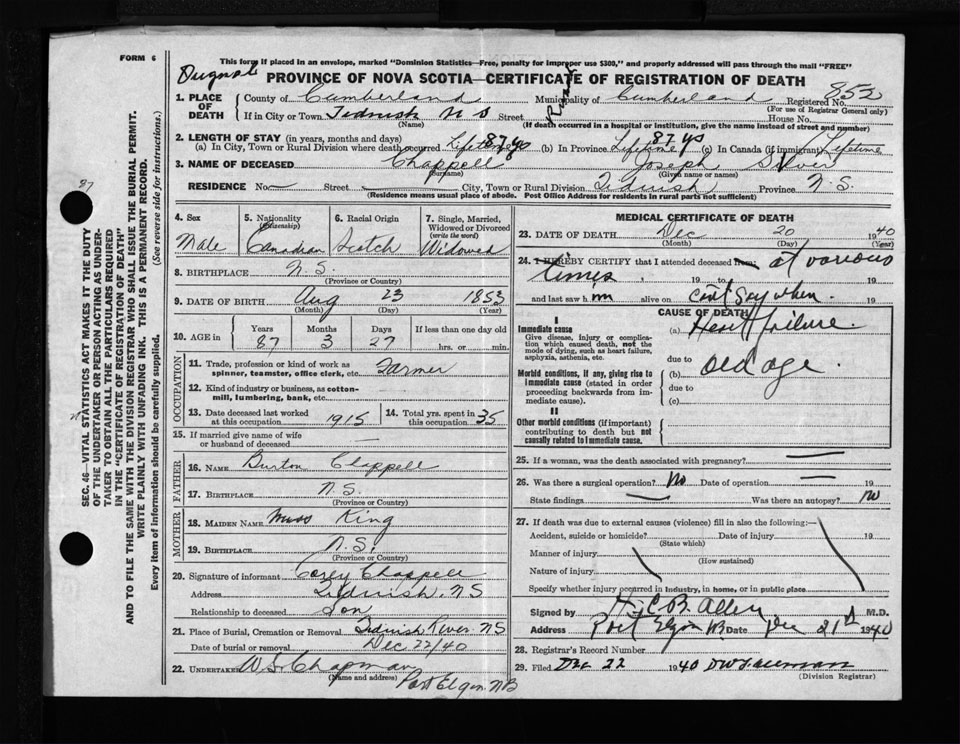 FORM 6
This form if placed in an envelope, marked "Dominion Statistics—Free, penalty for improper use $300," and properly addressed will pass through the mail "FREE"
PROVINCE OF NOVA SCOTIA—CERTIFICATE OF REGISTRATION OF DEATH
1. PLACE OF DEATH County of Cumberland Municipality of Cumberland Registered No. 852
(For use of Registrar General only)
If in City or Town Tidnish N S Street House No.
(Name) (If death occurred in a hospital or institution, give the name instead of street and number)
2. LENGTH OF STAY (in years, months and days)
(a) In City, Town or Rural Division where death occurred Lifetime 87 ys (b) In Province Lifetime 87 ys (c) In Canada (if immigrant) Lifetime
3. NAME OF DECEASED Chappell Joseph Silver
(Surname) (Given name or names)
RESIDENCE No. Street City, Town or Rural Division Tidnish Province N.S.
(Residence means usual place of abode. Post Office Address for residents in rural parts not sufficient)
SEC. 46—VITAL STATISTICS ACT MAKES IT THE DUTY
OF THE UNDERTAKER OR PERSON ACTING AS UNDER-
TAKER TO OBTAIN ALL THE PARTICULARS REQUIRED
IN THE "CERTIFICATE OF REGISTRATION OF DEATH"
AND TO FILE THE SAME WITH THE DIVISION REGISTRAR WHO SHALL ISSUE THE BURIAL PERMIT.
WRITE PLAINLY WITH UNFADING INK. THIS IS A PERMANENT RECORD.
Every item of Information should be carefully supplied. (See reverse side for instructions.)
87
4. Sex Male
5. Nationality (Citizenship) Canadian
6. Racial Origin Scotch
7. Single, Married, Widowed or Divorced (write the word) Widowed
8. BIRTHPLACE N.S.
(Province or Country)
9. DATE OF BIRTH Aug 23 1853
(Month) (Day) (Year)
10. AGE in Years 87 Months 3 Days 27 If less than one day old hrs. or min.
OCCUPATION
11. Trade, profession or kind of work as spinner, teamster, office clerk, etc. Farmer
12. Kind of industry or business, as cotton-mill, lumbering, bank, etc.
13. Date deceased last worked at this occupation 1915 14. Total yrs. spent in this occupation 35
15. If married give name of wife or husband of deceased
FATHER
16. NAME Burton Chappell
17. BIRTHPLACE N.S.
(Province or Country)
MOTHER
18. MAIDEN NAME Miss King
19. BIRTHPLACE N.S.
(Province or Country)
20. Signature of informant Corey Chappell
Address Tidnish, N.S
Relationship to deceased Son
21. Place of Burial, Cremation or Removal Tidnish River NS
Date of burial or removal Dec 22/40
22. UNDERTAKER W.S. Chapman
(Name and address) Port Elgin NB
MEDICAL CERTIFICATE OF DEATH
23. DATE OF DEATH Dec 20 1940
(Month) (Day) (Year)
24. I HEREBY CERTIFY that I attended deceased from at various
times , 19 , 19
and last saw him alive on can't say when. 19
CAUSE OF DEATH
I
Immediate cause
Give disease, injury or complication which caused death, not the mode of dying, such as heart failure, asphyxia, asthenia, etc.
(a) Heart failure.
due to
Morbid conditions, if any, giving rise to immediate cause (stated in order proceeding backwards from immediate cause).
(b) old age.
due to
(c)
II
Other morbid conditions (if important) contributing to death but not causally related to immediate cause.
25. If a woman, was the death associated with pregnancy?
26. Was there a surgical operation? No Date of operation 19
State findings Was there an autopsy? No
27. If death was due to external causes (violence) fill in also the following:—
Accident, suicide or homicide? Date of injury 19
(State which)
Manner of injury
(How sustained)
Nature of injury
Specify whether injury occurred in industry, in home, or in public place
Signed by H.C.B. Allen M.D.
Address Port Elgin NB Date Dec 21st 1940
28. Registrar's Record Number
29. Filed Dec 22 1940
(Division Registrar)